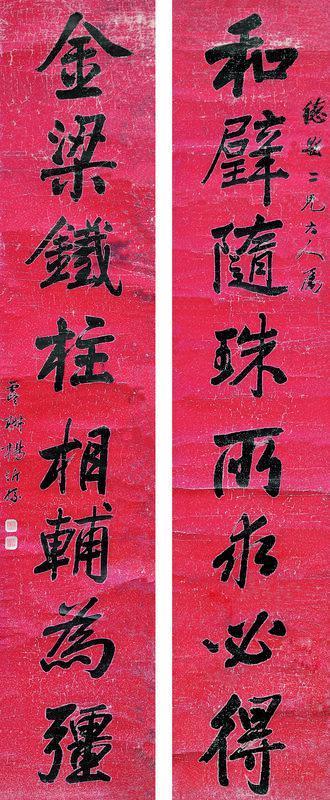 德二兄大人屬
和璧隨珠所求必得
金梁鐵柱相輔為彊
楊沂孫